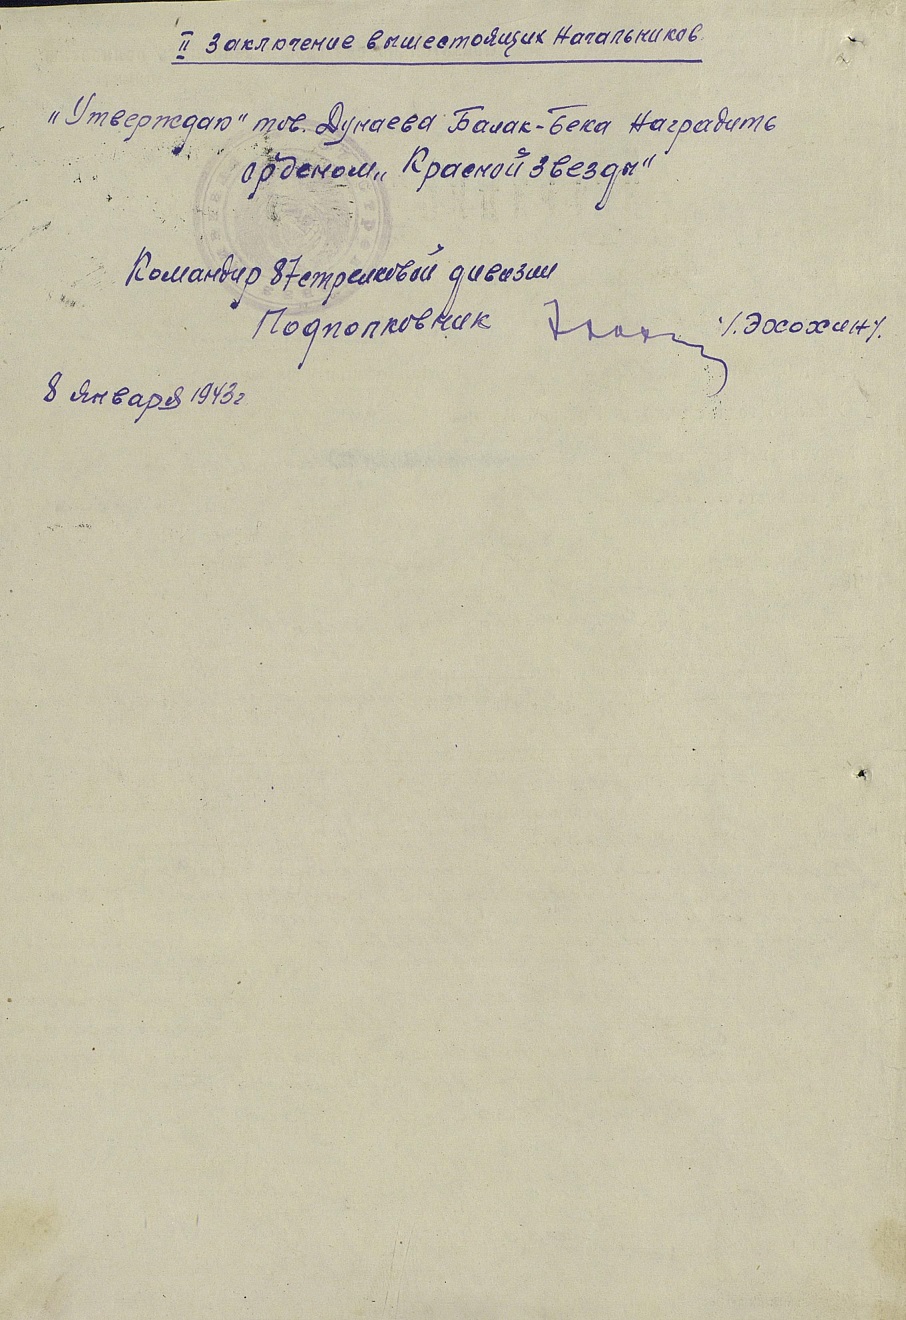 II Заключение вышестоящих Начальников
„Утверждаю" тов. Дунаева Балак-Бека Наградить
орденом „Красной Звезды"
Командир 87 стрелковой дивизии
Подполковник /Эхохин/.
8 Января 1943г